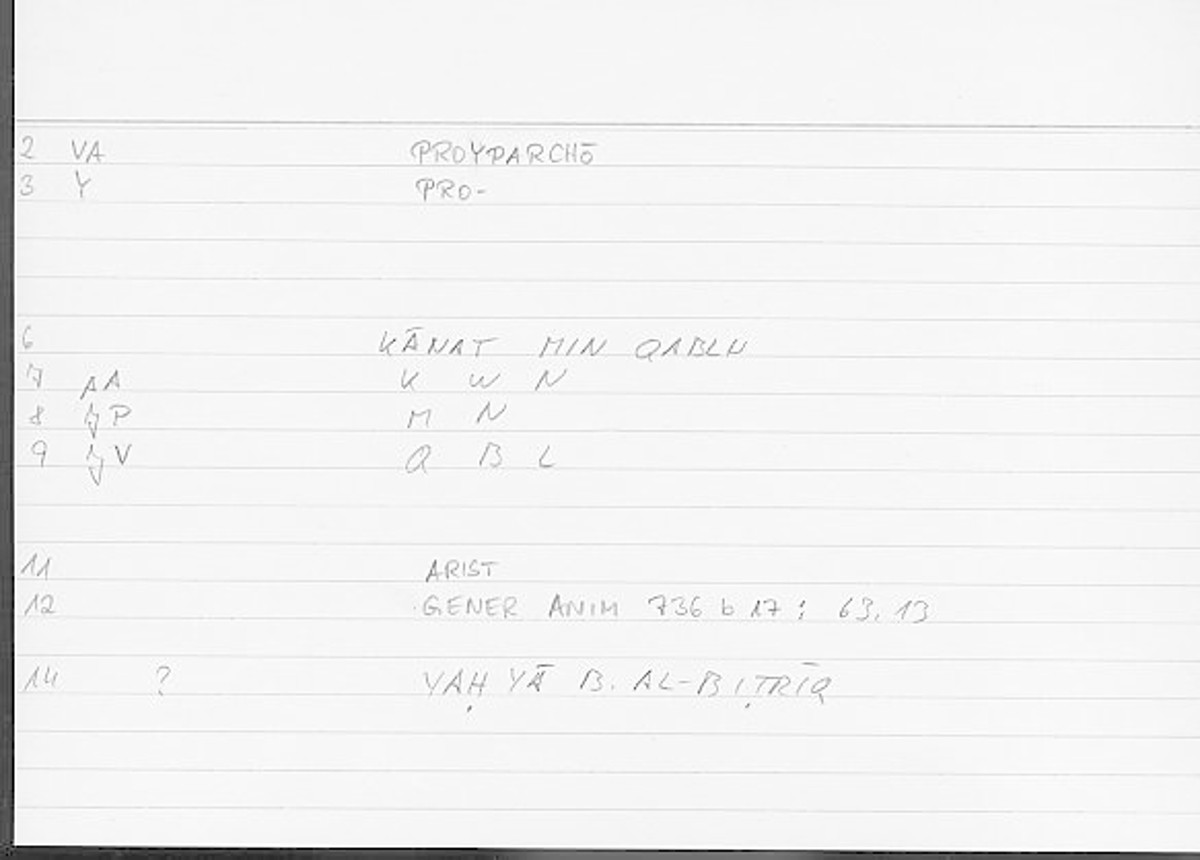 2 VA PROYPARCHŌ
3 Y PRO-
6 KĀNAT MIN QABLU
7 AA K W N
8 P M N
9 V Q B L
11 ARIST
12 GENER ANIM 736 b 17 ; 63, 13
14 ? YAḤYĀ B. AL-BIṬRĪQ